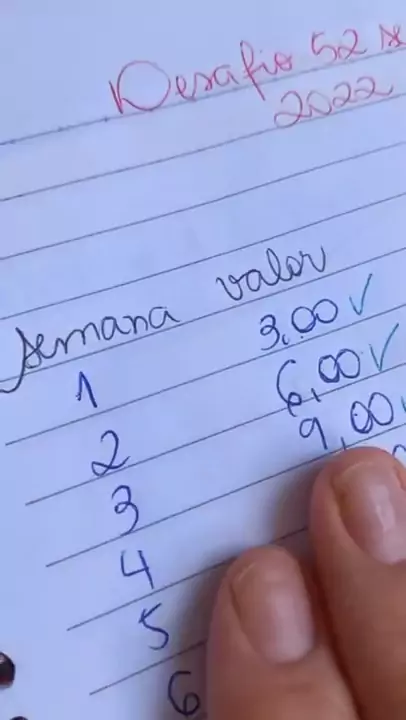 Desafio 52
2022
semana valor
1 3,00 ✓
2 6,00 ✓
3 9,00
4
5
6